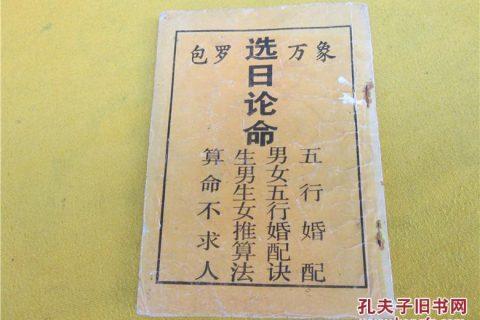 包罗万象
选日论命
五行婚配
男女五行婚配诀
生男生女推算法
算命不求人
孔夫子旧书网